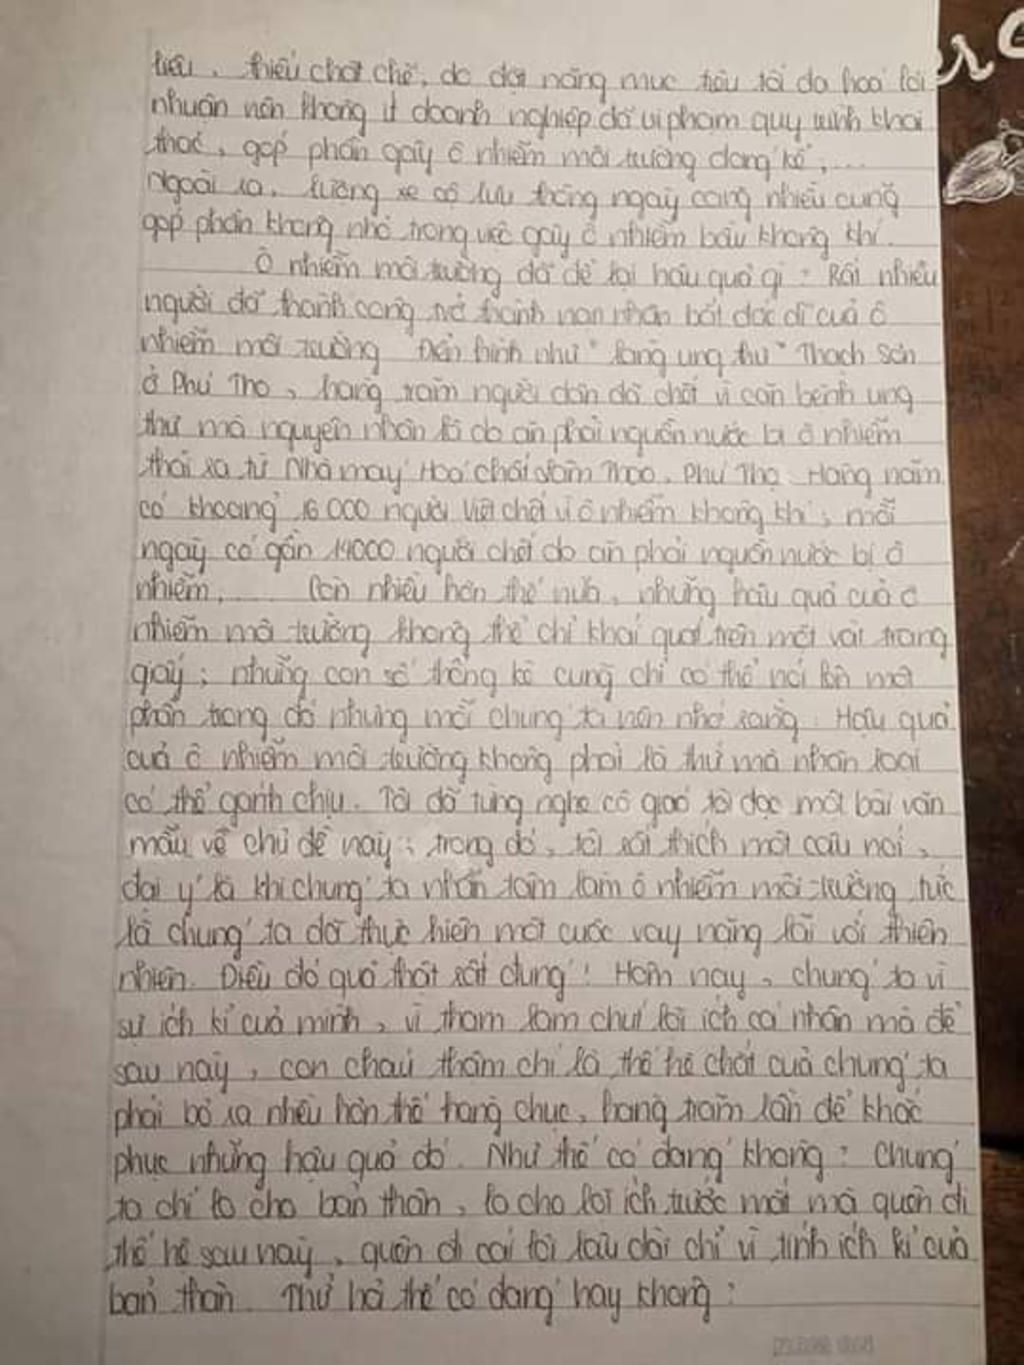 tiêu, thiếu chặt chẽ, do đặt nặng mục tiêu tối đa hoá lợi
nhuận nên không ít doanh nghiệp đã vi phạm quy trình khai
thác, góp phần gây ô nhiễm môi trường đáng kể,...
Ngoài ra, lượng xe cộ lưu thông ngày càng nhiều cũng
góp phần không nhỏ trong việc gây ô nhiễm bầu không khí.
Ô nhiễm môi trường đã để lại hậu quả gì? Rất nhiều
người đã thành công trở thành nạn nhân bất đắc dĩ của ô
nhiễm môi trường. Điển hình như "làng ung thư" Thạch Sơn
ở Phú Thọ, hàng trăm người dân đã chết vì căn bệnh ung
thư mà nguyên nhân là do ăn phải nguồn nước bị ô nhiễm
thải ra từ Nhà máy Hoá chất Lâm Thao, Phú Thọ. Hàng năm
có khoảng 16 000 người Việt chết vì ô nhiễm không khí, mỗi
ngày có gần 14000 người chết do ăn phải nguồn nước bị ô
nhiễm,... Còn nhiều hơn thế nữa, những hậu quả của ô
nhiễm môi trường không thể chỉ khái quát trên một vài trang
giấy; những con số thống kê cũng chỉ có thể nói lên một
phần trong đó nhưng mỗi chúng ta nên nhớ rằng: Hậu quả
của ô nhiễm môi trường không phải là thứ mà nhân loại
có thể gánh chịu. Tôi đã từng nghe cô giáo tôi đọc một bài văn
mẫu về chủ đề này; trong đó, tôi rất thích một câu nói,
đại ý là khi chúng ta nhẫn tâm làm ô nhiễm môi trường, tức
là chúng ta đã thực hiện một cuộc vay nặng lãi với thiên
nhiên. Điều đó quả thật rất đúng! Hôm nay, chúng ta vì
sự ích kỉ của mình, vì tham lam chút lợi ích cá nhân mà để
sau này, con cháu thậm chí là thế hệ chắt của chúng ta
phải bỏ ra nhiều hơn thế hàng chục, hàng trăm lần để khắc
phục những hậu quả đó. Như thế có đáng không? Chúng
ta chỉ lo cho bản thân, lo cho lợi ích trước mắt mà quên đi
thế hệ sau này, quên đi cái lợi lâu dài chỉ vì tính ích kỉ của
bản thân. Thử hỏi thế có đáng hay không?